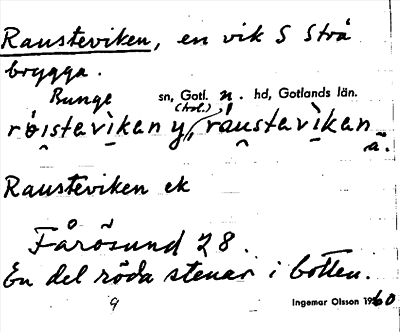 Rausteviken, en vik S Strå
brygga.
Bunge sn, Gotl. n. hd, Gotlands län.
(hol.)
röistavìkan y, ràustavìkan
ä.
Rausteviken ek
Fårösund 28.
En del röda stenar i botten.
9 Ingemar Olsson 1960